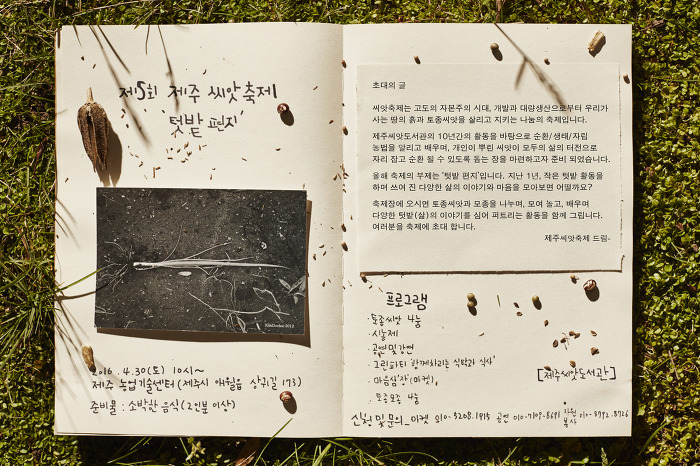 제5회 제주 씨앗축제
'텃밭 편지'
KimDoolee 2012
2016. 4.30(토) 10시~
제주 농업기술센터(제주시 애월읍 상귀길 173)
준비물 : 소박한 음식(2인분 이상)
초대의 글
씨앗축제는 고도의 자본주의 시대, 개발과 대량생산으로부터 우리가
사는 땅의 흙과 토종씨앗을 살리고 지키는 나눔의 축제입니다.
제주씨앗도서관의 10년간의 활동을 바탕으로 순환/생태/자립
농법을 알리고 배우며, 개인이 뿌린 씨앗이 모두의 삶의 터전으로
자리 잡고 순환 될 수 있도록 돕는 장을 마련하고자 준비 되었습니다.
올해 축제의 부제는 '텃밭 편지'입니다. 지난 1년, 작은 텃밭 활동을
하며 쓰여 진 다양한 삶의 이야기와 마음을 모아보면 어떨까요?
축제장에 오시면 토종씨앗과 모종을 나누며, 모여 놀고, 배우며
다양한 텃밭(삶)의 이야기를 심어 퍼트리는 활동을 함께 그립니다.
여러분을 축제에 초대 합니다.
제주씨앗축제 드림-
프로그램
·토종씨앗 나눔
·시농제
·공연 및 강연
·그린파티 '함께차리는 식탁과 식사'
·마음심'장'(마켓),
·모종모종 나눔
[제주씨앗도서관]
신청 및 문의_마켓 010.5208.1915 공연 010-7109-8691 자원봉사 010-8792.8726